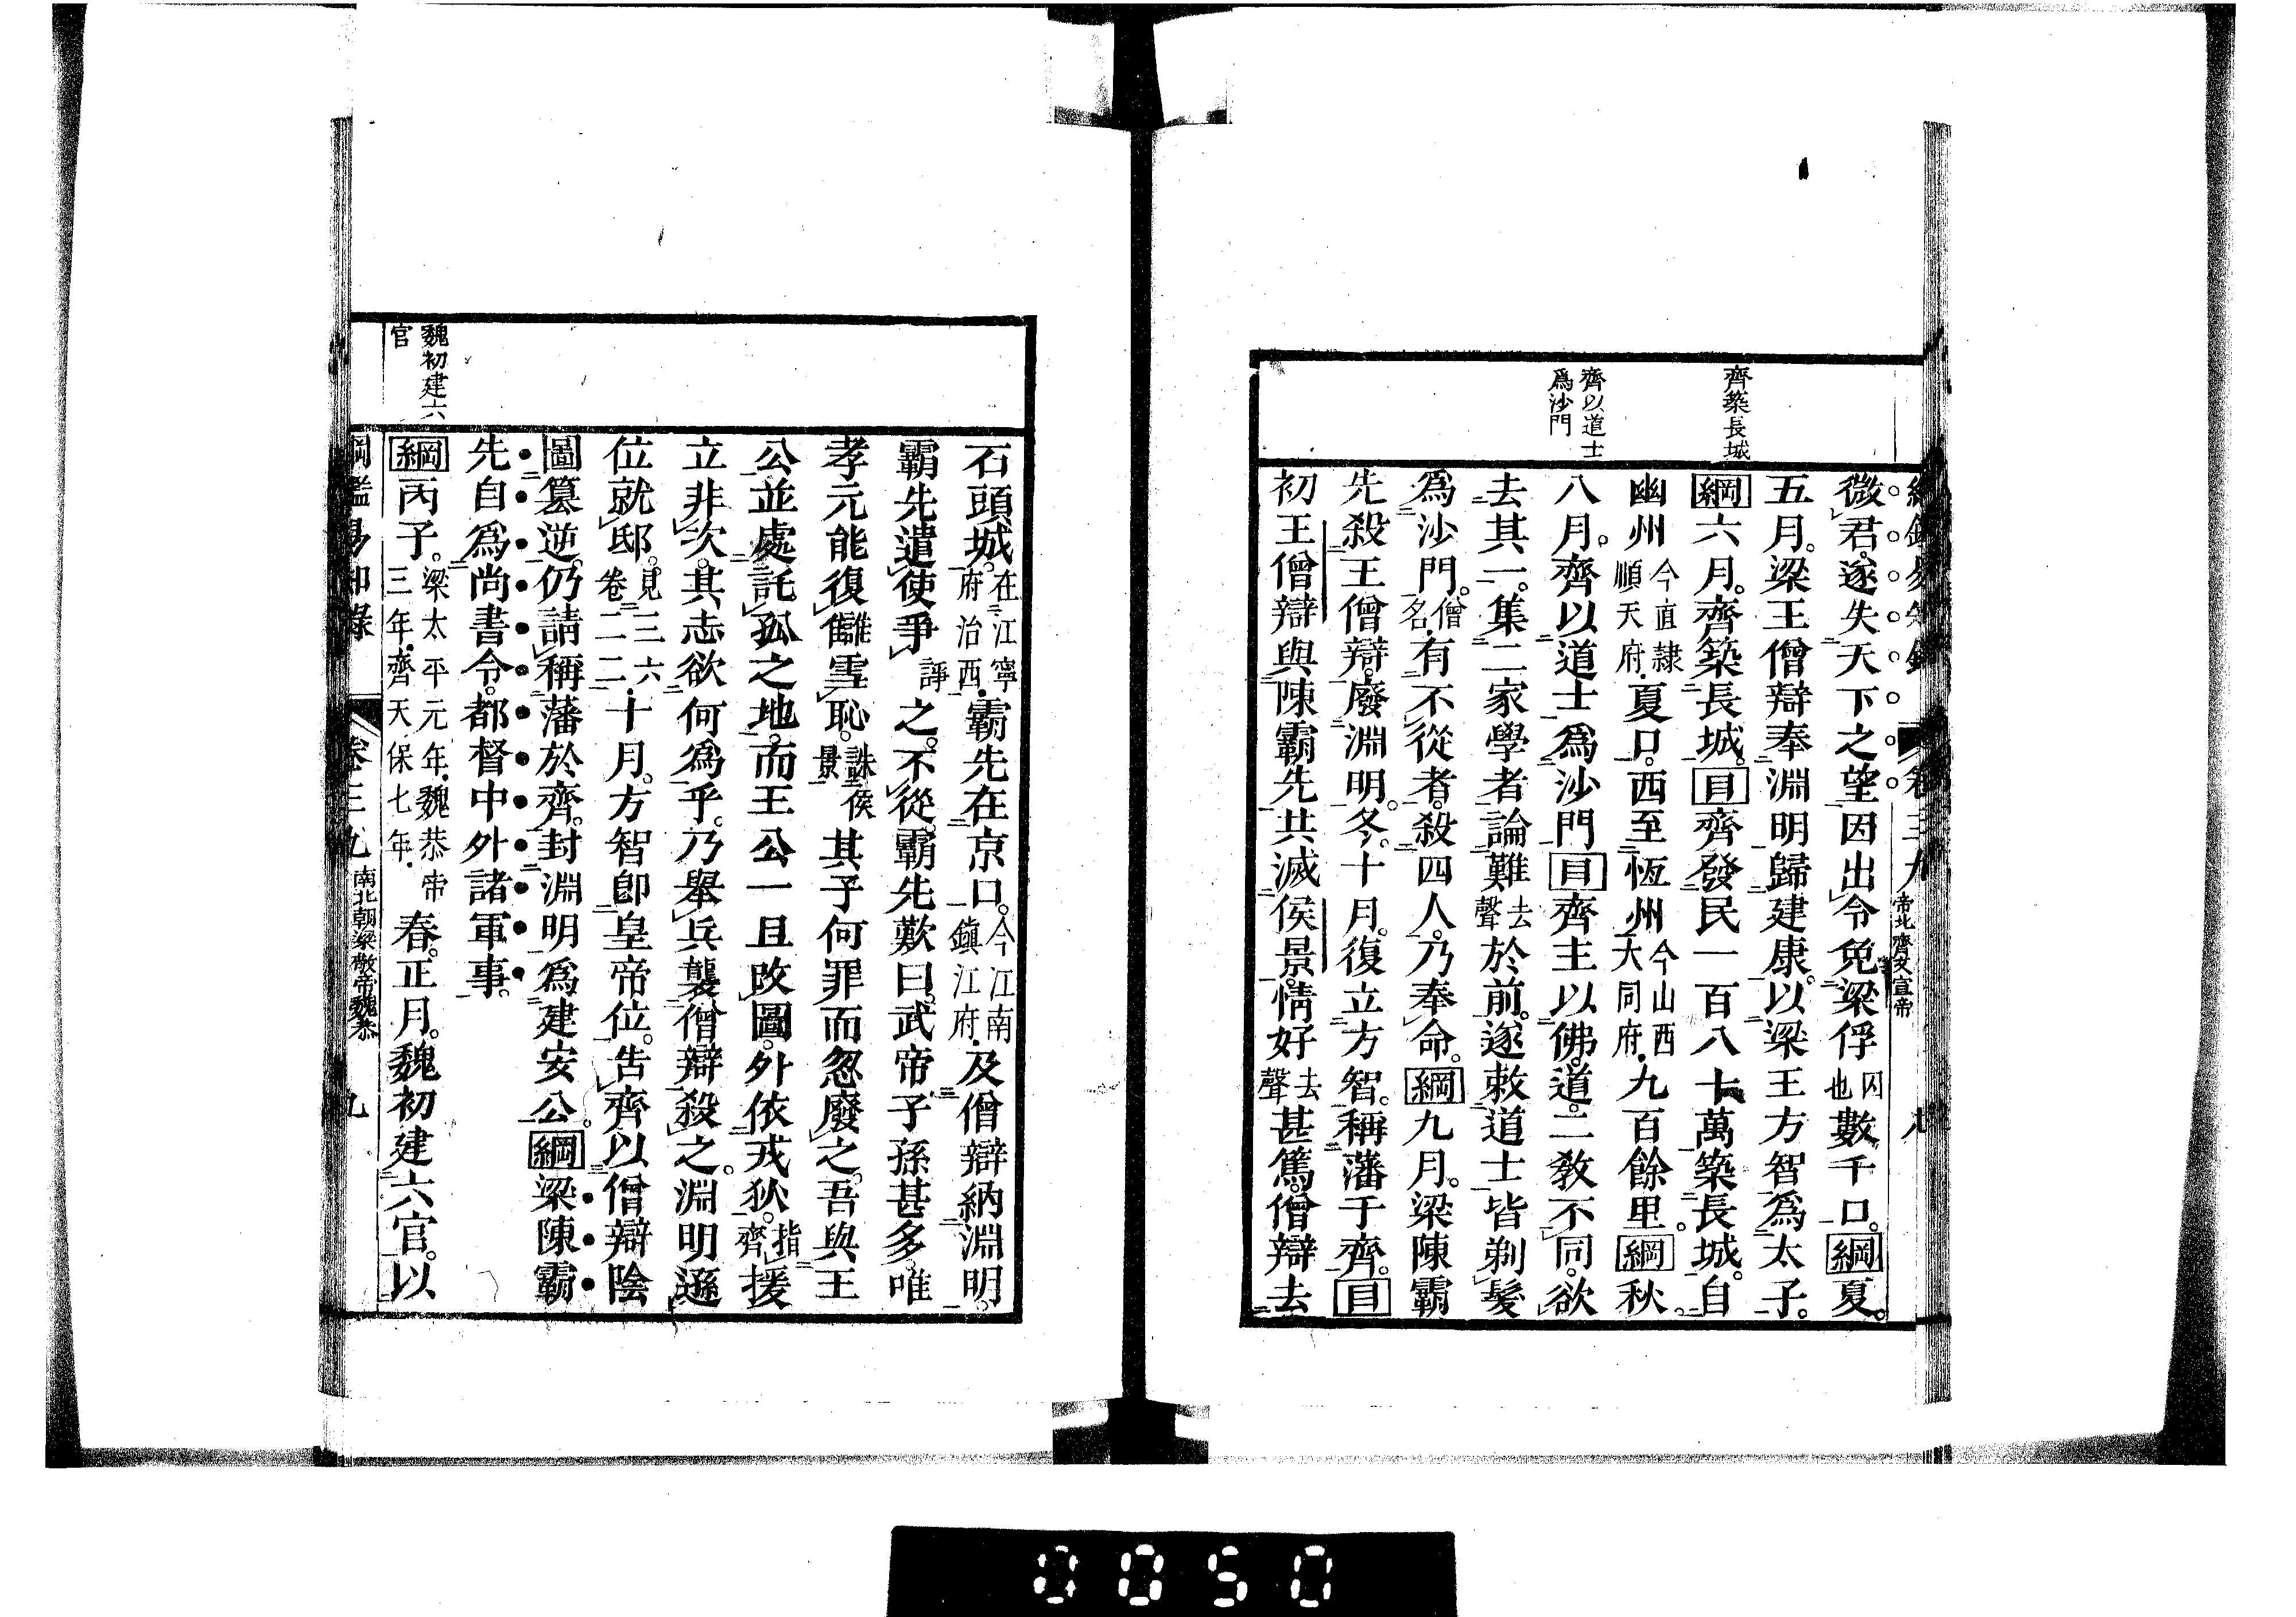 齊築長城
齊以道士
爲沙門
微君遂失天下之望因出令免梁俘囚也數千口。綱夏。
五月。梁王僧辯奉淵明歸建康。以梁王方智爲太子。
綱六月。齊築長城。目齊發民一百八十萬築長城。自
幽州今直隸順天府.夏口。西至恆州今山西大同府.九百餘里。綱秋。
八月。齊以道士爲沙門目齊主以佛道。二敎不同。欲
去其一。集二家學者論難去聲於前。遂敕道士皆剃髮
爲沙門。僧名.有不從者。殺四人。乃奉命。綱九月。梁陳霸
先殺王僧辯。廢淵明。冬。十月。復立方智。稱藩于齊。目
初王僧辯與陳霸先共滅侯景。情好去聲甚篤。僧辯去
帝北齊文宣帝
石頭城。在江寧府治西.霸先在京口。今江南鎭江府.及僧辯納淵明。
霸先遣使爭諍之。不從。霸先歎曰。武帝子孫甚多。唯
孝元能復讎雪恥。誅侯景其子何罪而忽廢之。吾與王
公並處託孤之地。而王公一旦改圖。外依戎狄。指齊援
立非次。其志欲何爲乎。乃舉兵襲僧辯殺之。淵明遜
位就邸。見三六卷二二.十月。方智卽皇帝位。告齊以僧辯陰
圖篡逆。仍請稱藩於齊。封淵明爲建安公。綱梁陳霸
先自爲尚書令。都督中外諸軍事。
魏初建六
官
綱丙子。梁太平元年.魏恭帝三年.齊天保七年.春。正月。魏初建六官。以
綱鑑易知錄 卷三九 南北朝梁敬帝魏恭 九
0050